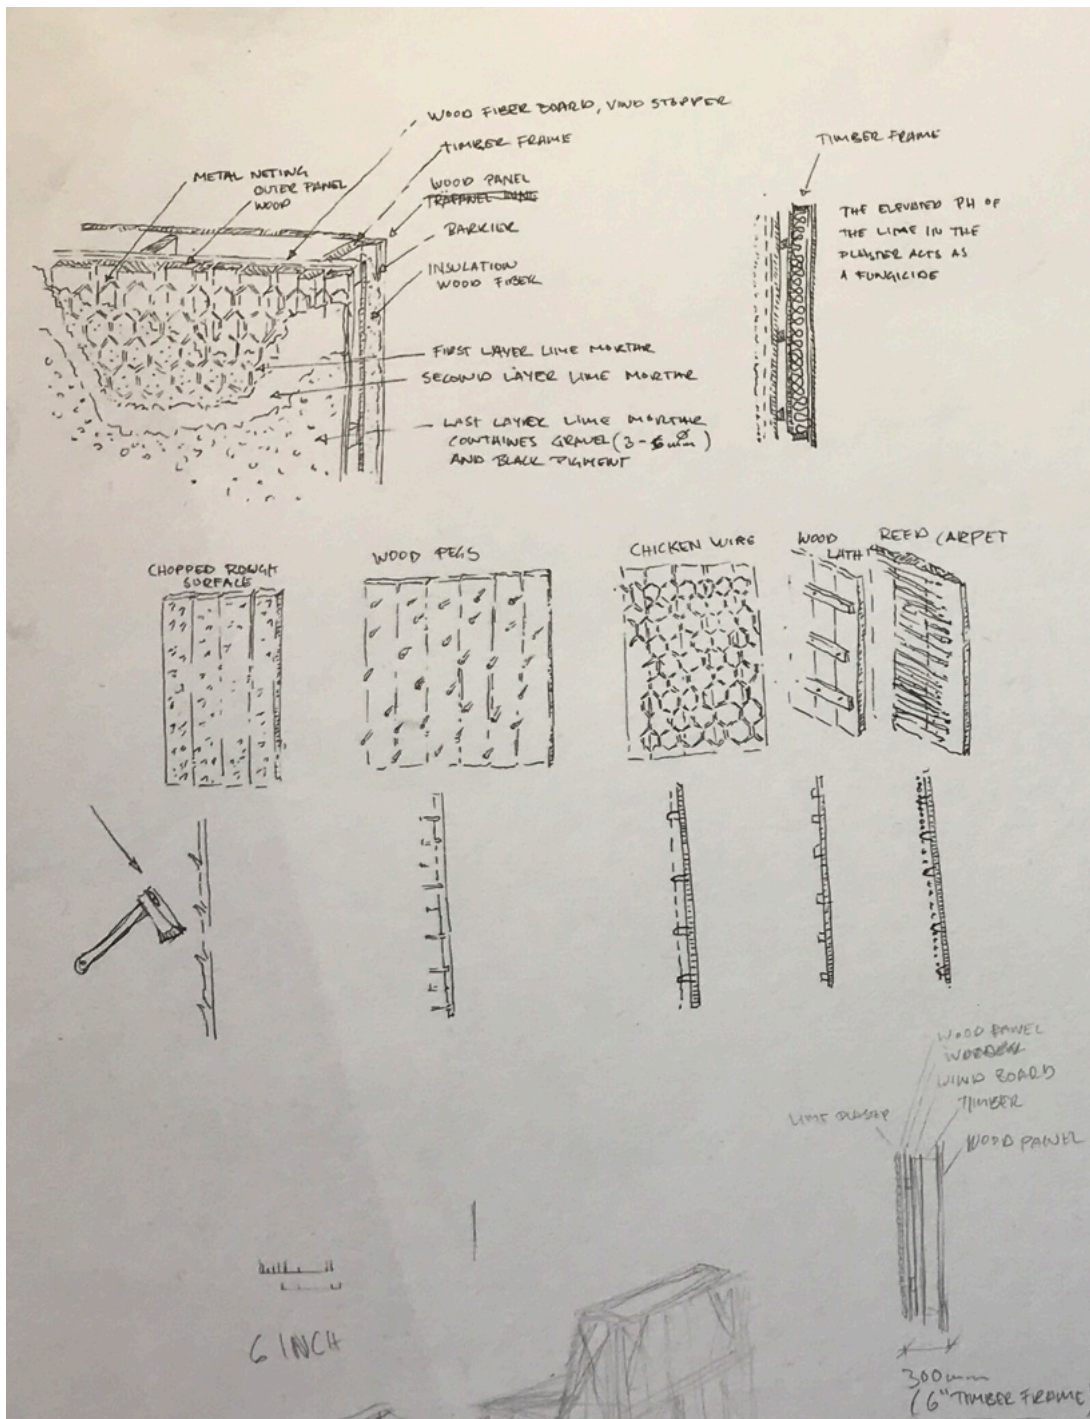 WOOD FIBER BOARD, VIND STOPPER
TIMBER FRAME
METAL NETING
OUTER PANEL
WOOD
WOOD PANEL
BARRIER
INSULATION
WOOD FIBER
FIRST LAYER LIME MORTAR
SECOND LAYER LIME MORTAR
LAST LAYER LIME MORTAR
CONTAINES GRAVEL (3-6mm)
AND BLACK PIGMENT
TIMBER FRAME
THE ELEVATED PH OF
THE LIME IN THE
PLASTER ACTS AS
A FUNGICIDE
CHOPPED ROUGH
SURFACE
WOOD PEGS
CHICKEN WIRE
WOOD
LATH
REED CARPET
WOOD PANEL
WIND BOARD
TIMBER
LIME
WOOD PANEL
6 INCH
300mm
(6" TIMBER FRAME